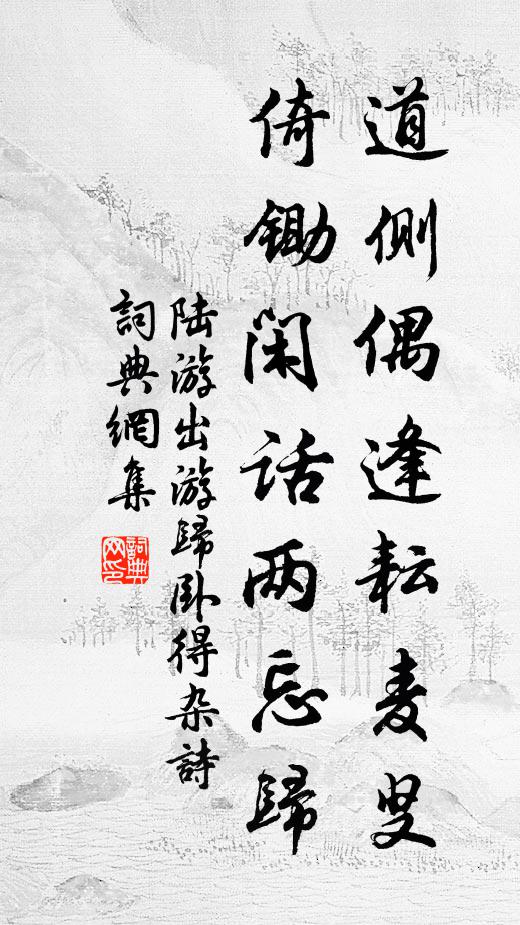 道侧偶逢耘麦叟
倚锄闲话两忘歸
陆游出游歸卧得杂詩
詞典網集
詞典网印